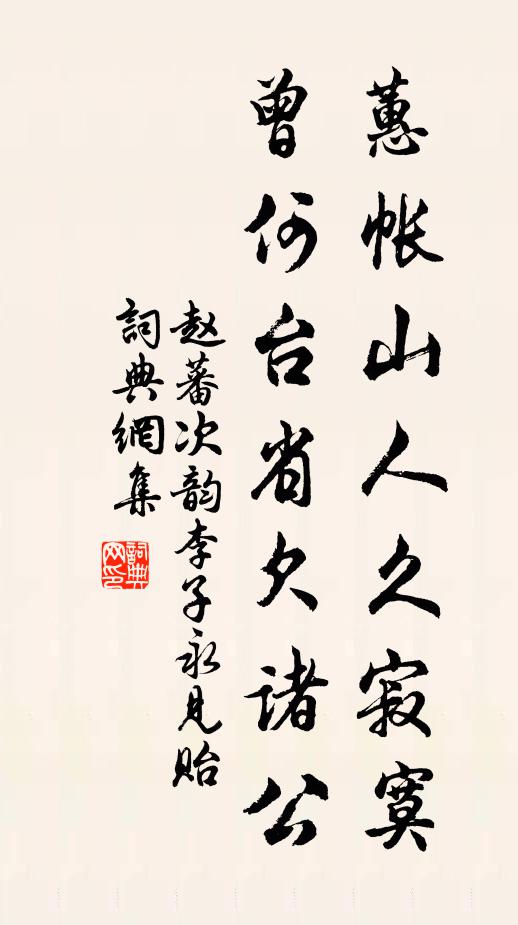 蕙帐山人久寂寞
曾何台省欠诸公
赵蕃次韵李子永见贻
詞典網集
詞典网印